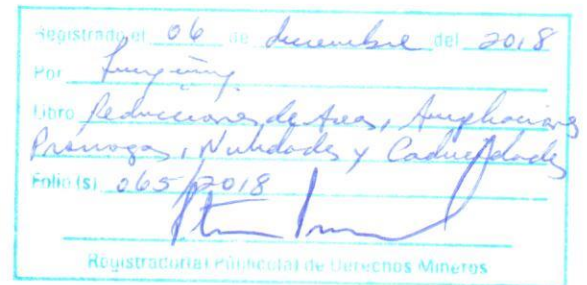 Registrado el 06 de diciembre del 2018
Por
Libro Reducciones de Areas, Ampliaciones
Prorrogas, Nulidades y Caducidades
Folio (s) 065/2018
Registrador(a) Público(a) de Derechos Mineros